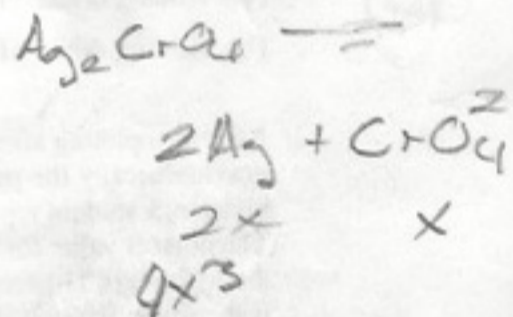 Ag₂CrO₄ ⇌
2Ag + CrO₄²
2x x
4x³